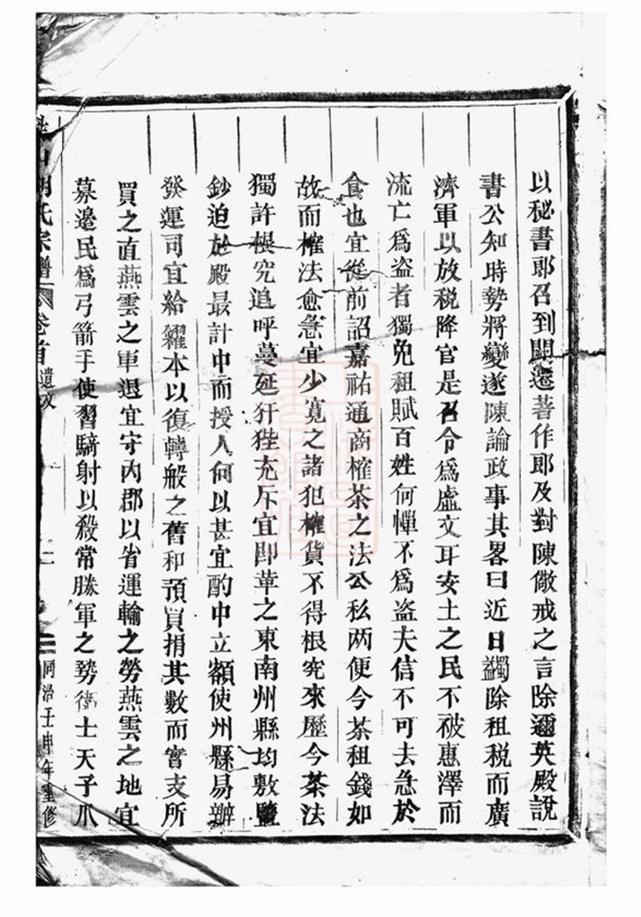 以秘書郎召到闕遷著作郎及對陳儆戒之言除邇英殿說
書公知時勢將變遂陳論政事其畧曰近日蠲除租稅而廣
濟軍以放稅降官是召令爲虛文耳安土之民不被惠澤而
流亡爲盜者獨免租賦百姓何憚不爲盜夫信不可去急於
食也宜從前詔嘉祐通商榷茶之法公私两便今茶租錢如
故而榷法愈急宜少寬之諸犯榷貨不得根究來歷今茶法
獨許根究追呼蔓延犴狴充斥宜即革之東南州縣均敷鹽
鈔迫於殿最計口而授人何以甚宜酌中立額使州縣易辦
發運司宜給糴本以復轉般之舊和預買捐其數而實支所
買之直燕雲之軍退宜守內郡以省運輸之勞燕雲之地宜
募邊民爲弓箭手使習騎射以殺常勝軍之勢衛士天子爪
山胡氏宗譜 卷首 遺文 二 同治壬申年重修